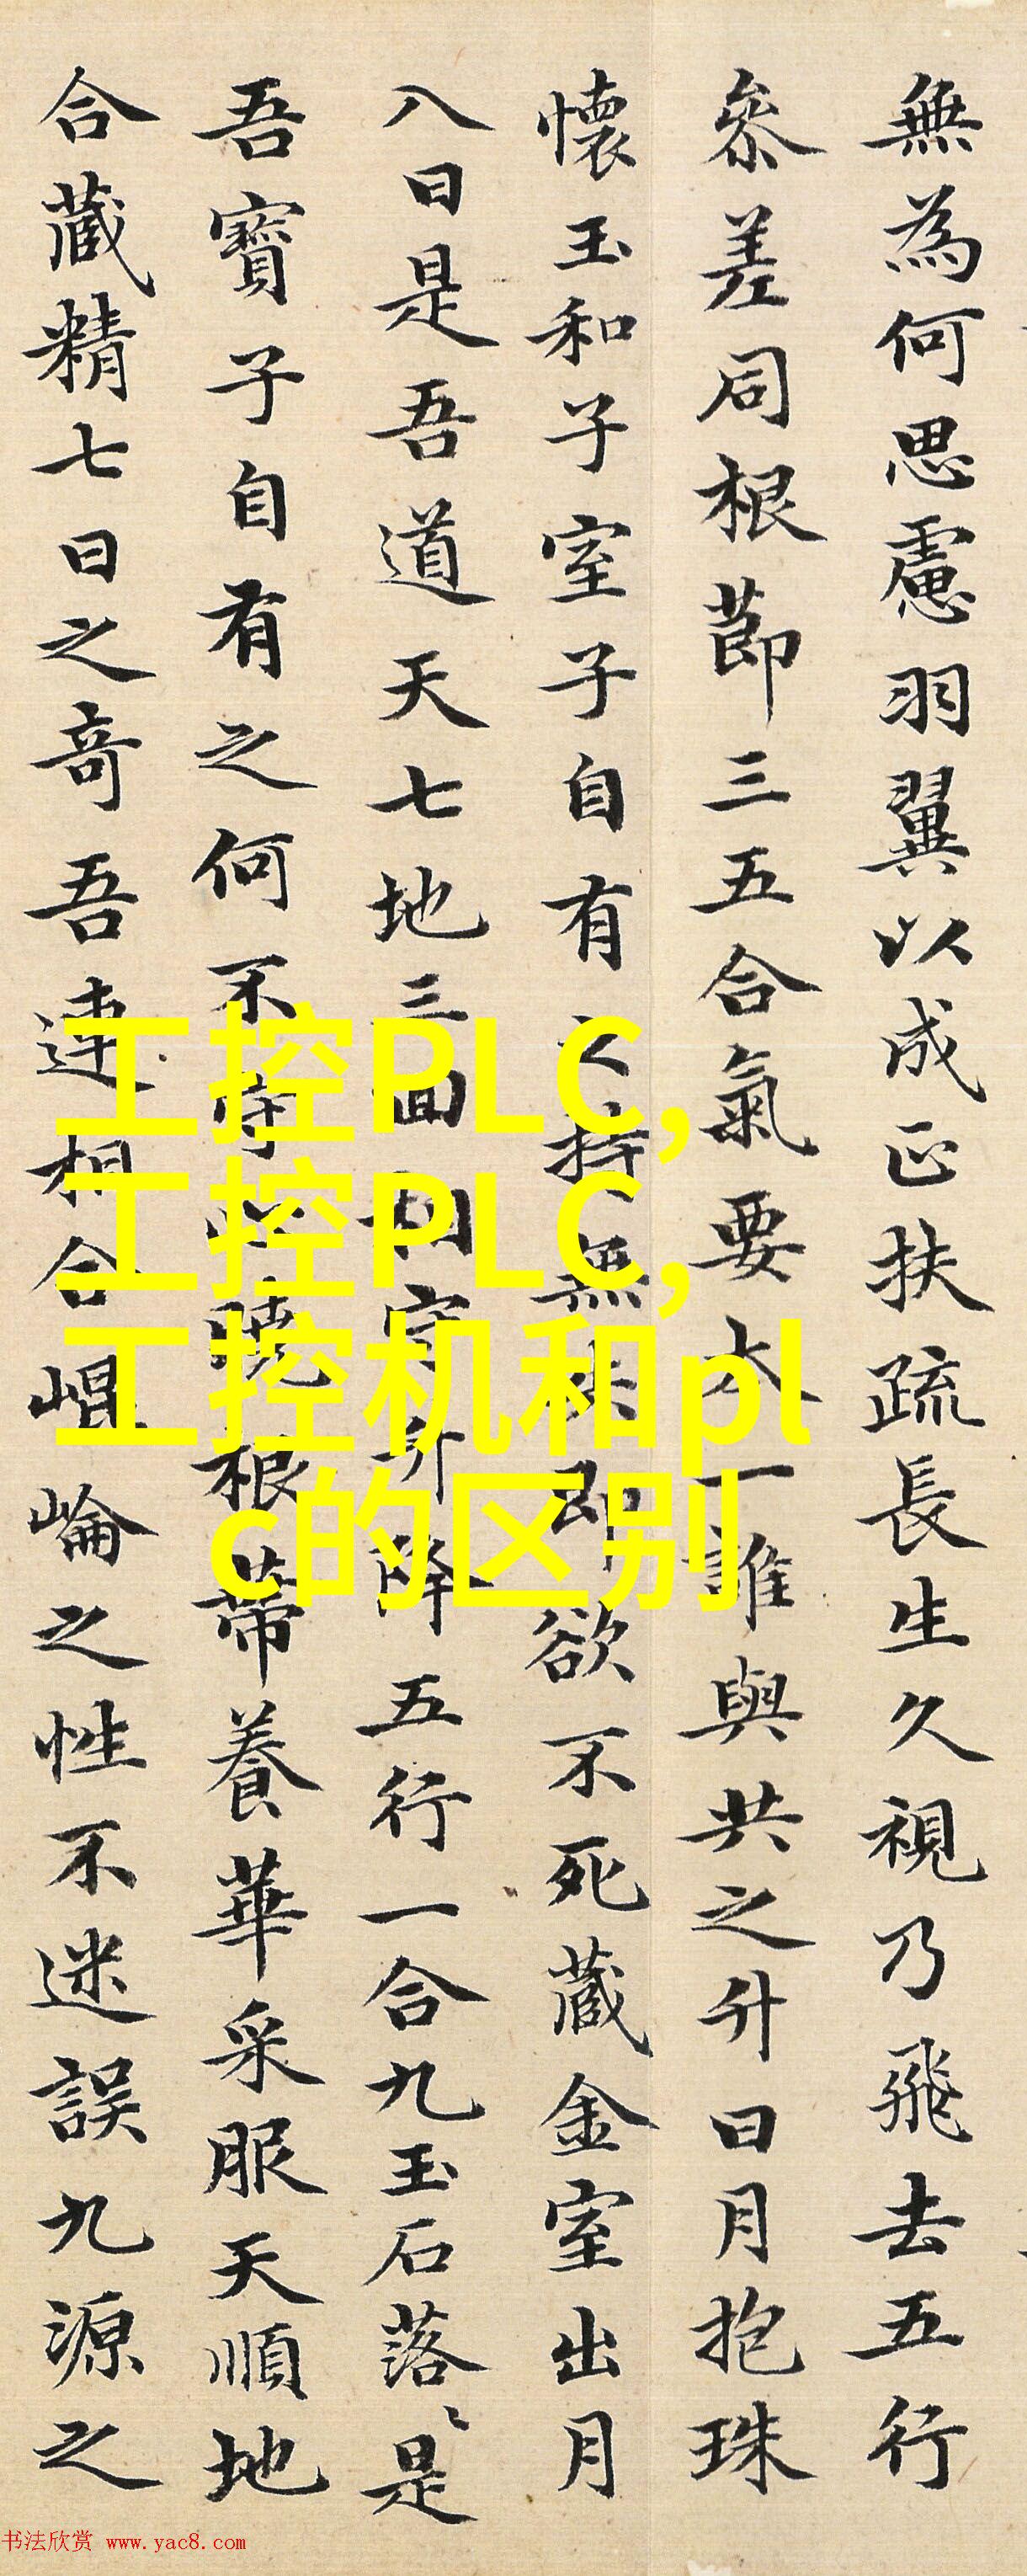 無為何思慮羽翼以成正扶疏長生久視乃飛去五行
參差同根節三五合氣要本一誰與共之升日月抱珠
懷玉和子室子自有之持無失即欲不死藏金室出月
八日是吾道天七地三回相守升降五行一合九玉石落〻是
吾寶子自有之何不守心曉根蒂養華采服天順地
合藏精七日之奇吾連相合崐崘之性不迷誤九源之
工控PLC,
工控PLC,
工控机和pl
c的区别
书法欣赏 www.yac8.com